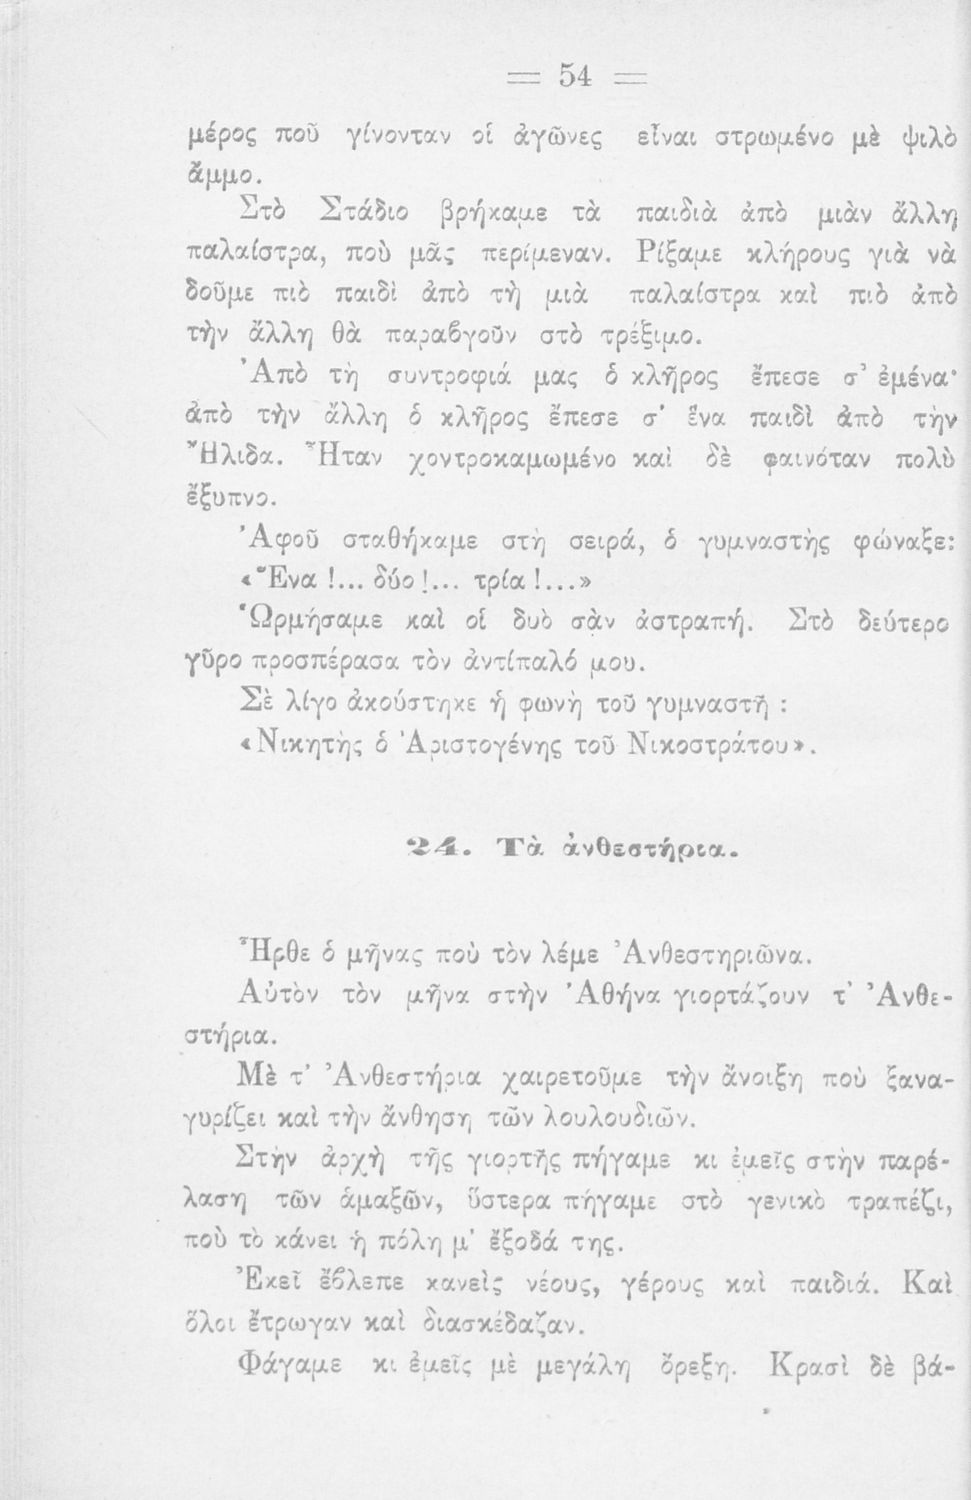 = 54 =
μέρος ποῦ γίνονταν οἱ ἀγῶνες εἶναι στρωμένο μὲ ψιλὸ
ἄμμο.
Στὸ Στάδιο βρήκαμε τὰ παιδιὰ ἀπὸ μιὰν ἄλλη
παλαίστρα, ποὺ μᾶς περίμεναν. Ρίξαμε κλήρους γιὰ νὰ
δοῦμε πιὸ παιδὶ ἀπὸ τὴ μιὰ παλαίστρα καὶ πιὸ ἀπὸ
τὴν ἄλλη θὰ παραβγοῦν στὸ τρέξιμο.
Ἀπὸ τὴ συντροφιά μας ὁ κλῆρος ἔπεσε σ' ἐμένα·
ἀπὸ τὴν ἄλλη ὁ κλῆρος ἔπεσε σ' ἕνα παιδὶ ἀπὸ τὴν
Ἤλιδα. Ἦταν χοντροκαμωμένο καὶ δὲ φαινόταν πολὺ
ἔξυπνο.
Ἀφοῦ σταθήκαμε στὴ σειρά, ὁ γυμναστὴς φώναξε:
«Ἕνα !... δύο !... τρία !...»
Ὡρμήσαμε καὶ οἱ δυὸ σὰν ἀστραπή. Στὸ δεύτερο
γῦρο προσπέρασα τὸν ἀντίπαλό μου.
Σὲ λίγο ἀκούστηκε ἡ φωνὴ τοῦ γυμναστῆ :
«Νικητὴς ὁ Ἀριστογένης τοῦ Νικοστράτου».
24. Τὰ ἀνθεστήρια.
Ἦρθε ὁ μῆνας ποὺ τὸν λέμε Ἀνθεστηριῶνα.
Αὐτὸν τὸν μῆνα στὴν Ἀθήνα γιορτάζουν τ' Ἀνθε-
στήρια.
Μὲ τ' Ἀνθεστήρια χαιρετοῦμε τὴν ἄνοιξη ποὺ ξανα-
γυρίζει καὶ τὴν ἄνθηση τῶν λουλουδιῶν.
Στὴν ἀρχὴ τῆς γιορτῆς πήγαμε κι ἐμεῖς στὴν παρέ-
λαση τῶν ἁμαξῶν, ὕστερα πήγαμε στὸ γενικὸ τραπέζι,
ποὺ τὸ κάνει ἡ πόλη μ' ἔξοδά της.
Ἐκεῖ ἔβλεπε κανεὶς νέους, γέρους καὶ παιδιά. Καὶ
ὅλοι ἔτρωγαν καὶ διασκέδαζαν.
Φάγαμε κι ἐμεῖς μὲ μεγάλη ὄρεξη. Κρασὶ δὲ βά-